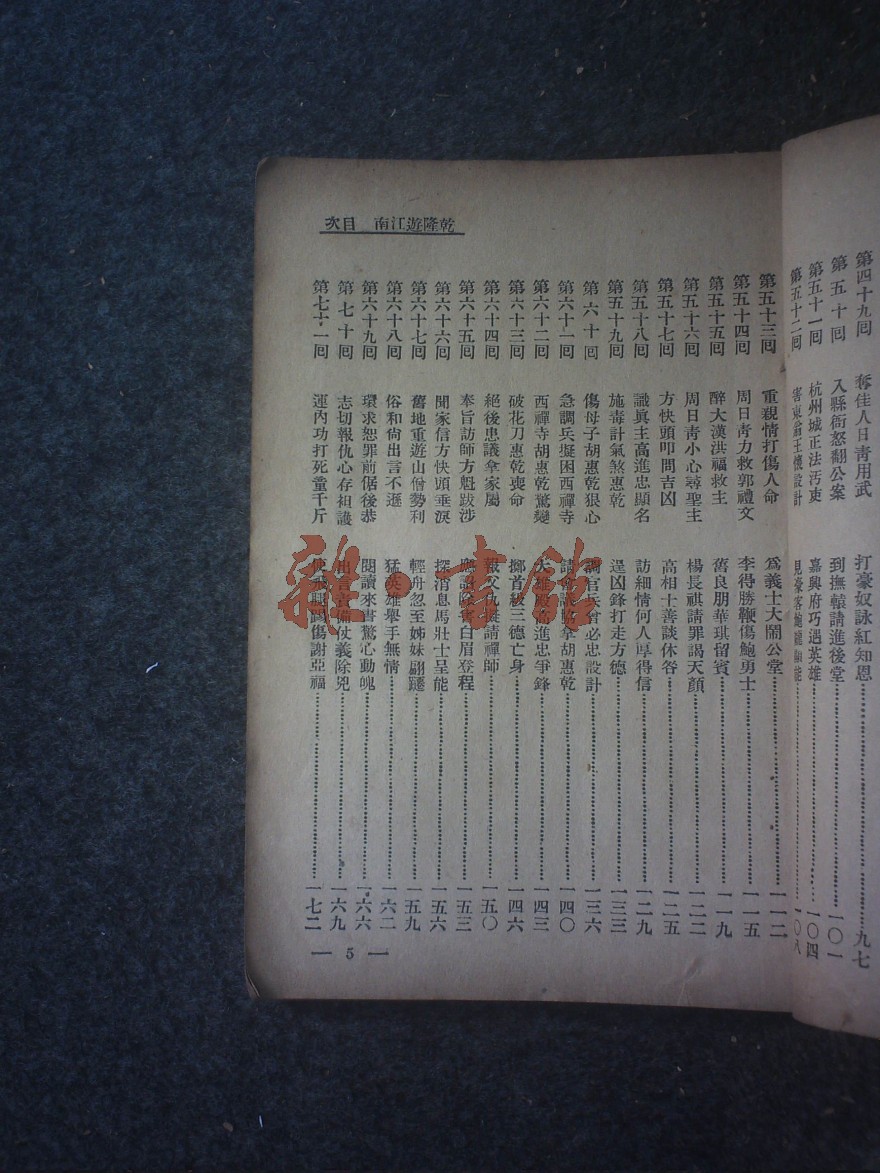 乾隆遊江南 目次
第四十九囘 奪佳人日靑用武 打豪奴詠紅知恩 九七
第五十囘 入縣衙怒翻公案 到撫轅請進後堂 一〇一
第五十一囘 杭州城正法汚吏 嘉興府巧遇英雄 一〇四
第五十二囘 害東翁王懷設計 見豪客鮑龍 能 一〇八
第五十三囘 重親情打傷人命 爲義士大鬧公堂 一一二
第五十四囘 周日靑力救郭禮文 李得勝鞭傷鮑勇士 一一五
第五十五囘 醉大漢洪福救主 舊良朋華琪留賓 一一九
第五十六囘 周日靑小心尋聖主 楊長祺請罪謁天顏 一二二
第五十七囘 方快頭叩問吉凶 高相士善談休咎 一二五
第五十八囘 識眞主高進忠顯名 訪細情何人厚得信 一二九
第五十九囘 施毒計氣煞惠乾 逞凶鋒打走方德 一三三
第六十囘 傷母子胡惠乾狠心 調官兵曾必忠設計 一三六
第六十一囘 急調兵擬困西禪寺 請會議協拿胡惠乾 一四〇
第六十二囘 西禪寺胡惠乾驚變 大雄殿高進忠爭鋒 一四三
第六十三囘 破花刀惠乾喪命 擲首級三德亡身 一四六
第六十四囘 絕後患議拿家屬 報父仇擬請禪師 一五〇
第六十五囘 奉旨訪師方魁跋涉 應詔除害白眉登程 一五三
第六十六囘 聞家信方快頭垂淚 探消息馬壯士呈能 一五六
第六十七囘 舊地重遊山僧勢利 輕舟忽至姊妹翩躚 一五九
第六十八囘 俗和尙出言不遜 猛英雄舉手無情 一六二
第六十九囘 環求恕罪前倨後恭 閱讀來書驚心動魄 一六六
第七十囘 志切報仇心存袒護 出言責備仗義除兇 一六九
第七十一囘 運內功打死童千斤 使飛腿踢傷謝亞福 一七二
— 5 —
雜·書館